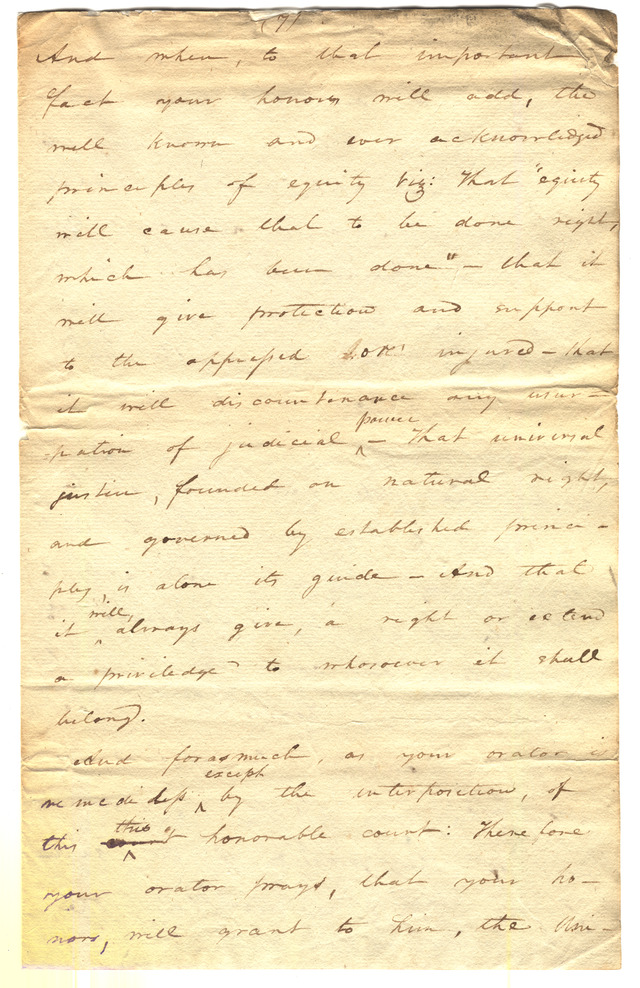 (7)
And when, to that important
fact your honors will add, the
well known and ever acknowledged
principles of equity viz: That "equity
will cause that to be done right,
which has been done" – that it
will give protection and support
to the oppressed injured – that
it will discountenance any usur-
pation of judicial power – That universal
justice, founded on natural rights,
and governed by established princi-
ples, is alone its guide – And that
it will, always give, a right or extend
a priviledge to whosoever it shall
belong.
And forasmuch, as your orator is
remedidless except by the interposition, of
this this honorable court: Therefore
your orator prays, that your ho-
nors, will grant to him, the Uni-